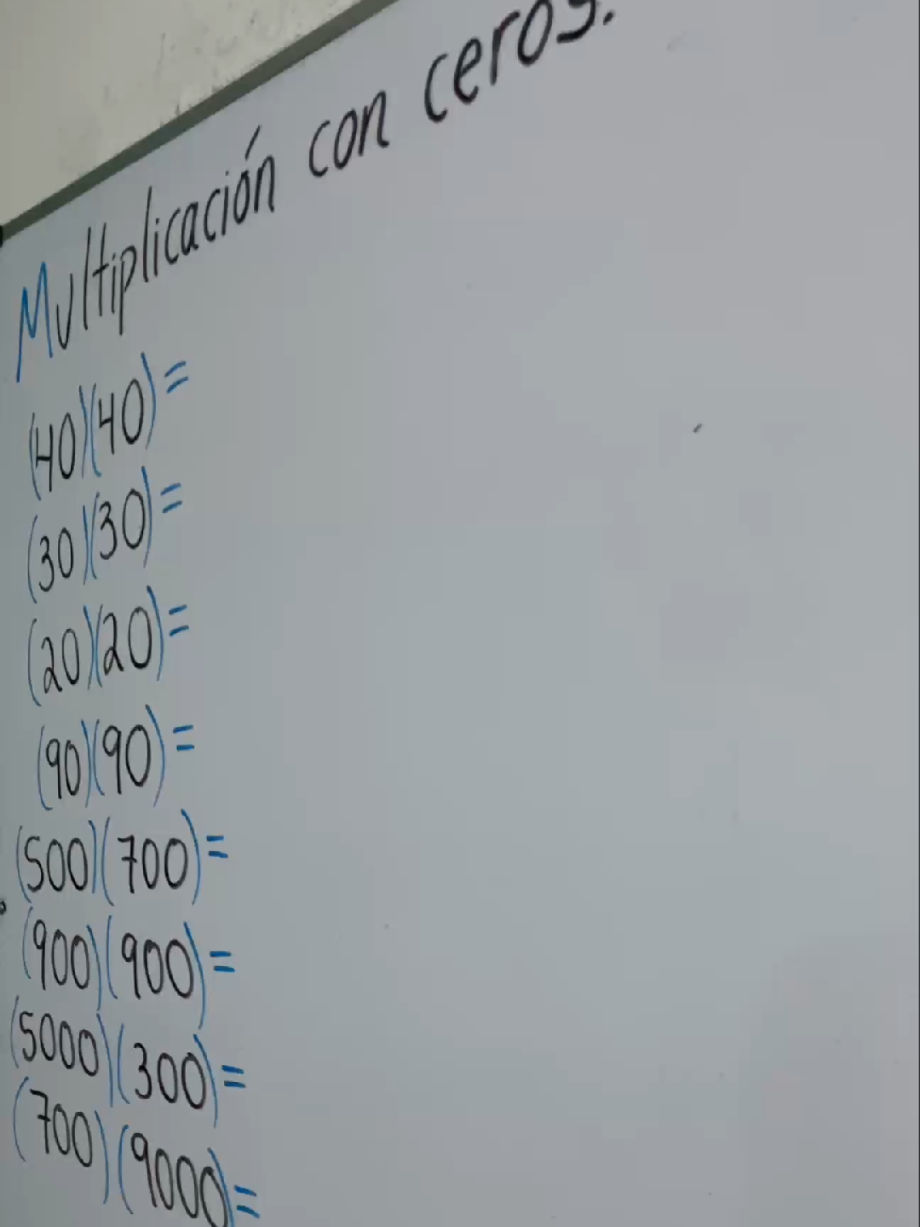 Multiplicación con ceros.
(40)(40)=
(30)(30)=
(20)(20)=
(90)(90)=
(500)(700)=
(900)(900)=
(5000)(300)=
(700)(9000)=